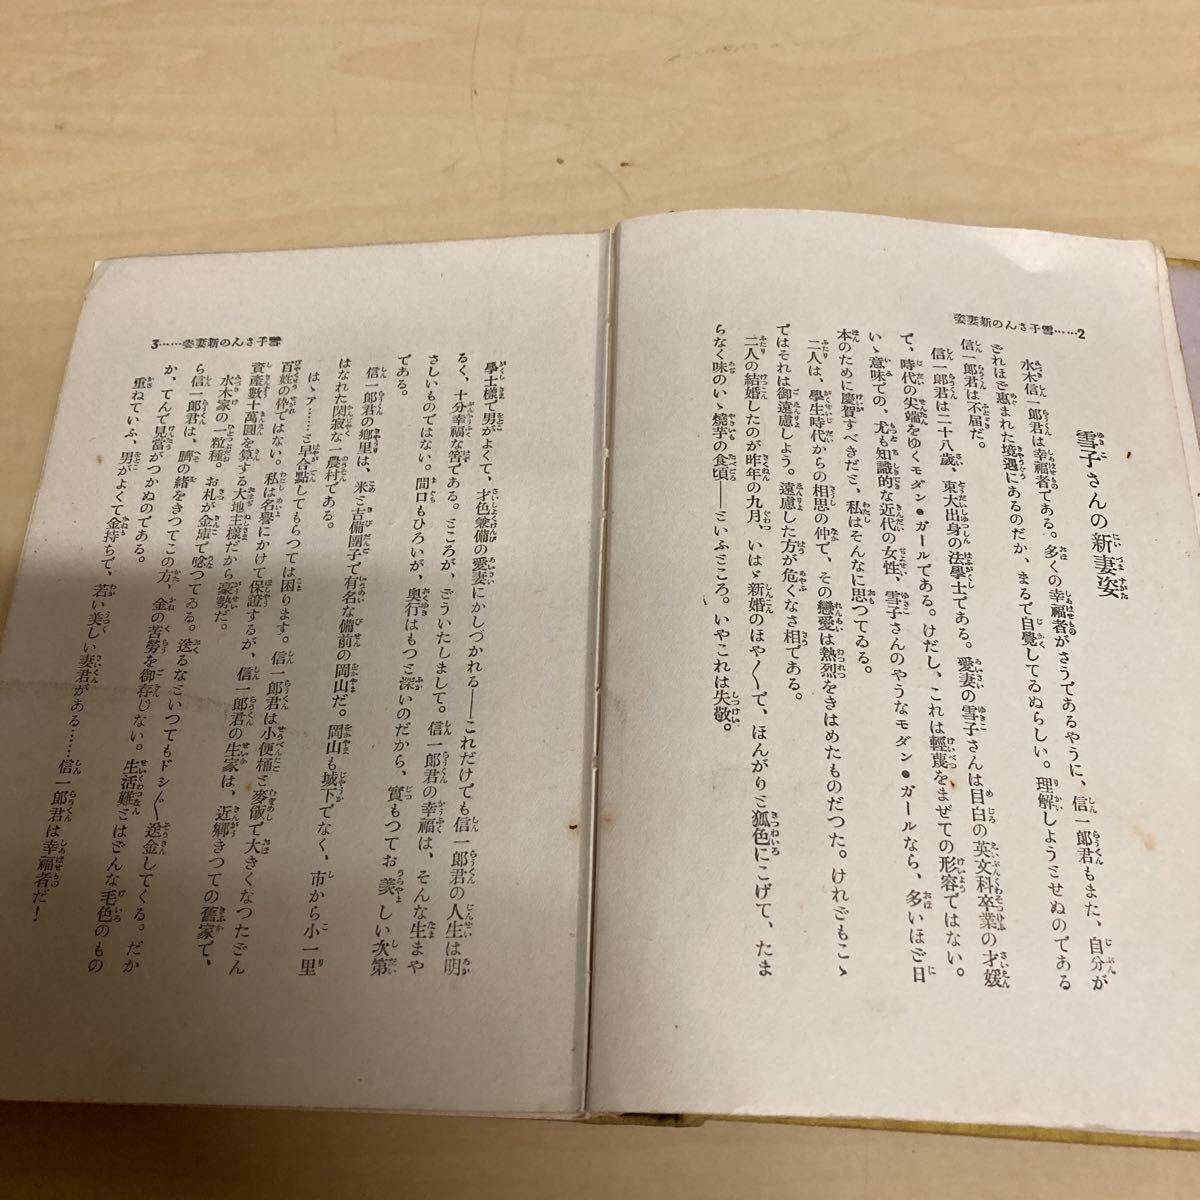 2……雪子さんの新妻姿
雪子さんの新妻姿
水木信一郎君は幸福者である。多くの幸福者がさうであるやうに、信一郎君もまた、自分が
どれほど惠まれた境遇にあるのだか、まるで自覺してゐぬらしい。理解しようとせぬのである
信一郎君は不屆だ。
信一郎君は二十八歳、東大出身の法學士である。愛妻の雪子さんは目白の英文科卒業の才媛
て、時代の尖端をゆくモダン・ガールである。けだし、これは輕蔑をまぜての形容ではない。
いゝ意味での、尤も知識的な近代の女性、雪子さんのやうなモダン・ガールなら、多いほど日
本のために慶賀すべきだと、私はそんなに思つてゐる。
二人は、學生時代からの相思の仲で、その戀愛は熱烈をきはめたものだつた。けれどもこゝ
ではそれは御遠慮しよう。遠慮した方が危くなさ相である。
二人の結婚したのが昨年の九月、いはゞ新婚のほや〳〵で、ほんがりと狐色にこげて、たま
らなく味のいゝ燒芋の食頃――といふところ。いやこれは失敬。
雪子さんの新妻姿……3
學士樣で男がよくて、才色兼備の愛妻にかしづかれる――これだけでも信一郎君の人生は明
るく、十分幸福な筈である。ところが、どういたしまして。信一郎君の幸福は、そんな生まや
さしいものではない。間口もひろいが、奥行はもつと深いのだから、實もつてお羨しい次第
である。
信一郎君の鄕里は、米と吉備團子で有名な備前の岡山だ。岡山も城下でなく、市から小一里
はなれた閑寂な一農村である。
はゝア……と早合點してもらつては困ります。信一郎君は小便桶と麥飯で大きくなつたどん
百姓の伜ではない。私は名譽にかけて保證するが、信一郎君の生家は、近鄕きつての舊家で、
資產數十萬圓を算する大地主樣だから豪勢だ。
水木家の一粒種。お札が金庫で唸つてゐる。送るなといつてもドシ〳〵送金してくる。だか
ら信一郎君は、臍の緒をきつてこの方、金の苦勞を御存じない。生活難とはどんな毛色のもの
か、てんで見當がつかぬのである。
重ねていふ、男がよくて金持ちで、若い美しい妻君がある……信一郎君は幸福者だ！